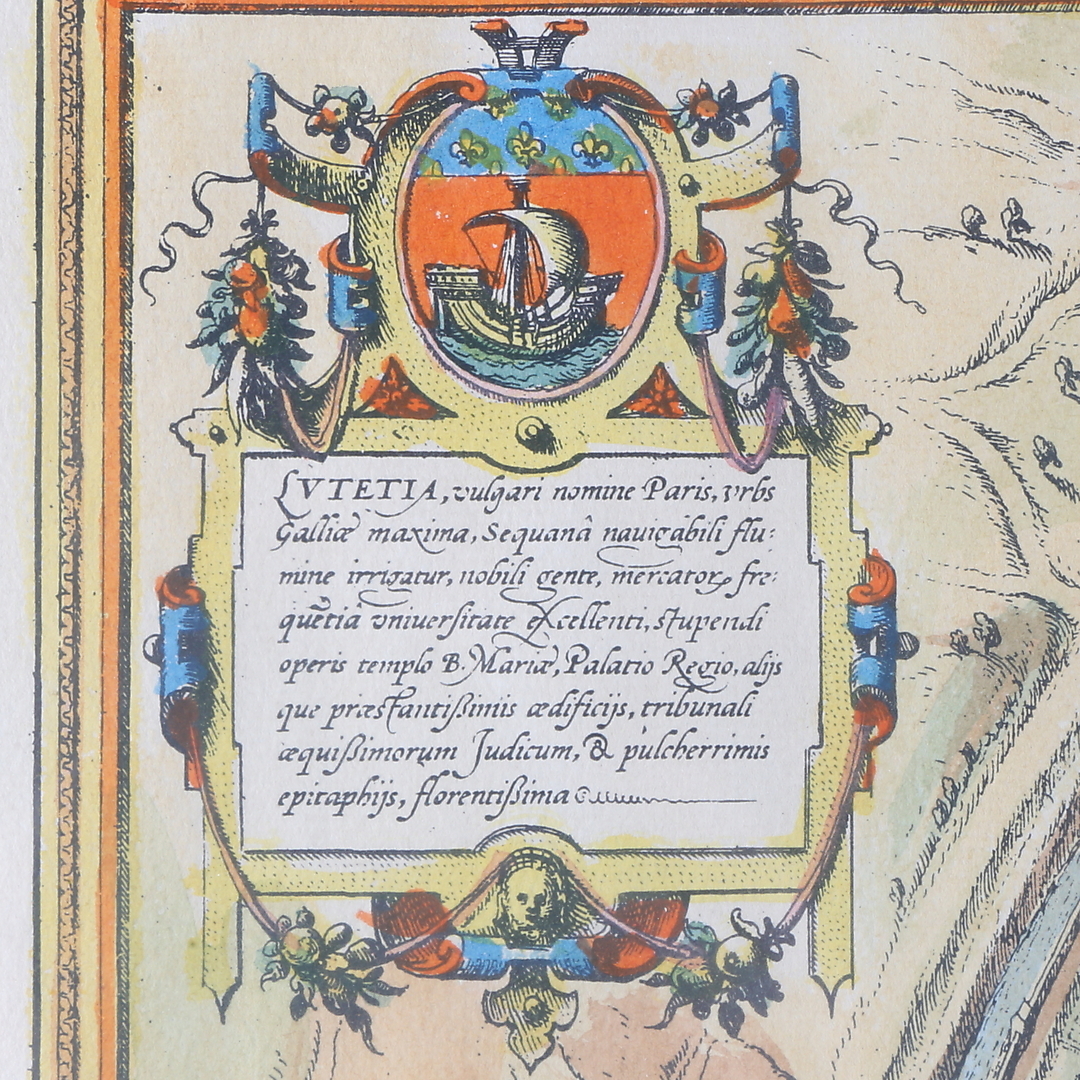 LVTETIA, vulgari nomine Paris, vrbs
Galliæ maxima, Sequanâ nauigabili flu:
mine irrigatur, nobili gente, mercatorꝝ fre:
quẽtiâ vniuersitate eXcellenti, stupendi
operis templo B. Mariæ, Palatio Regio, alijs
que præstantißimis ædificijs, tribunali
æquißimorum Judicum, & pulcherrimis
epitaphijs, florentißima